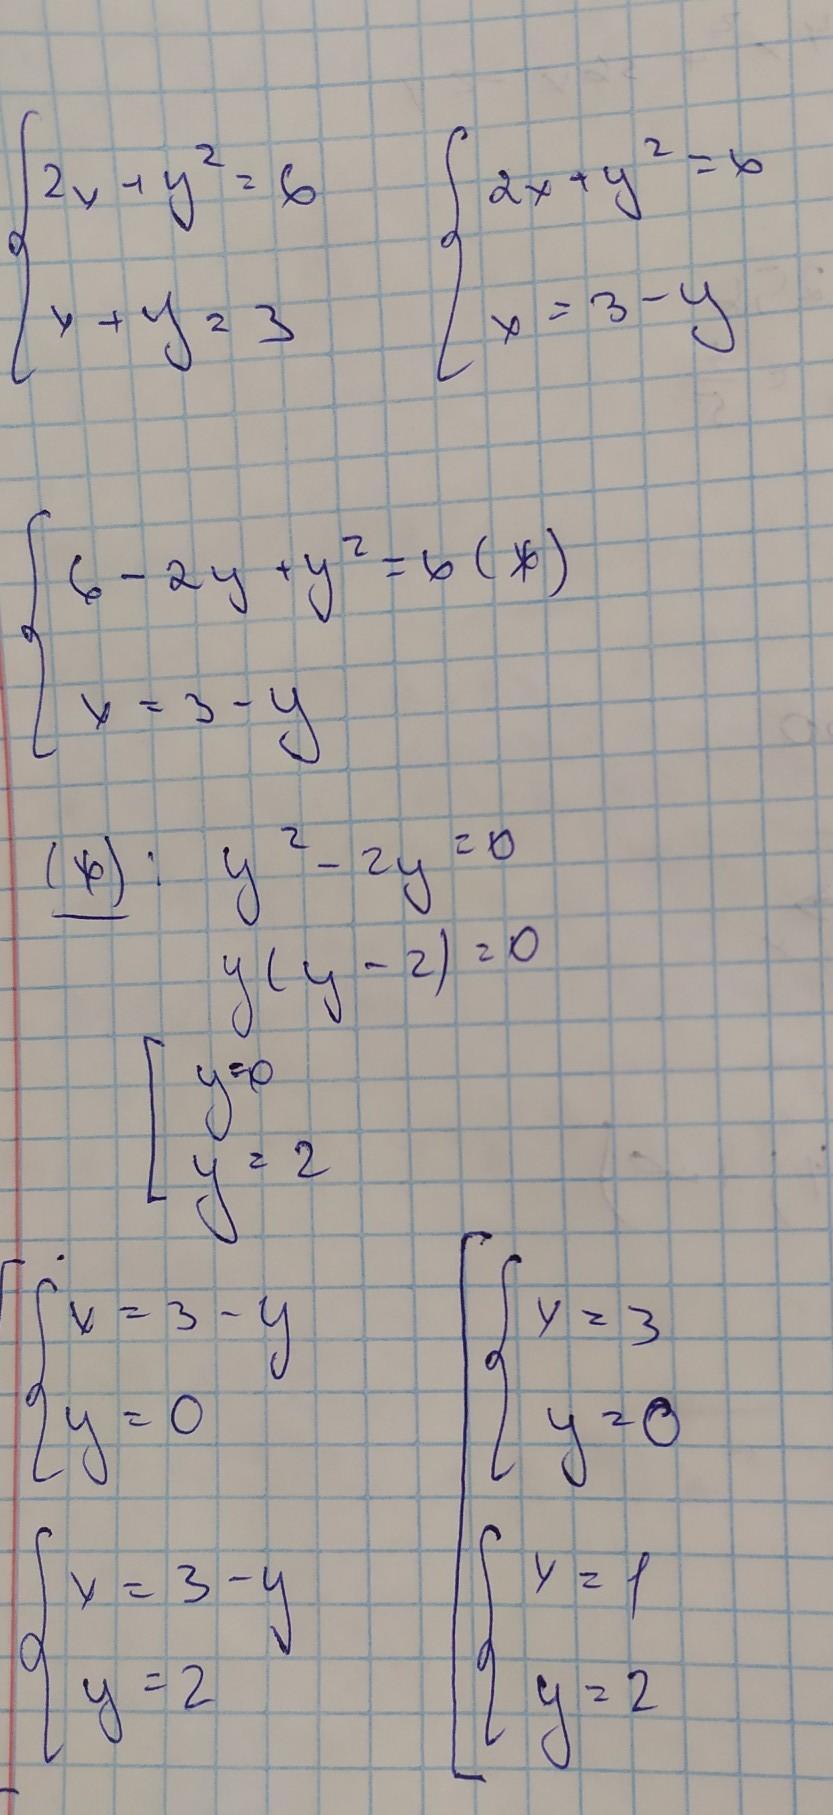 2x + y² = 6
x + y = 3
2x + y² = 6
x = 3 - y
6 - 2y + y² = 6 (*)
x = 3 - y
(*): y² - 2y = 0
y(y - 2) = 0
y = 0
y = 2
x = 3 - y
y = 0
x = 3 - y
y = 2
x = 3
y = 0
x = 1
y = 2